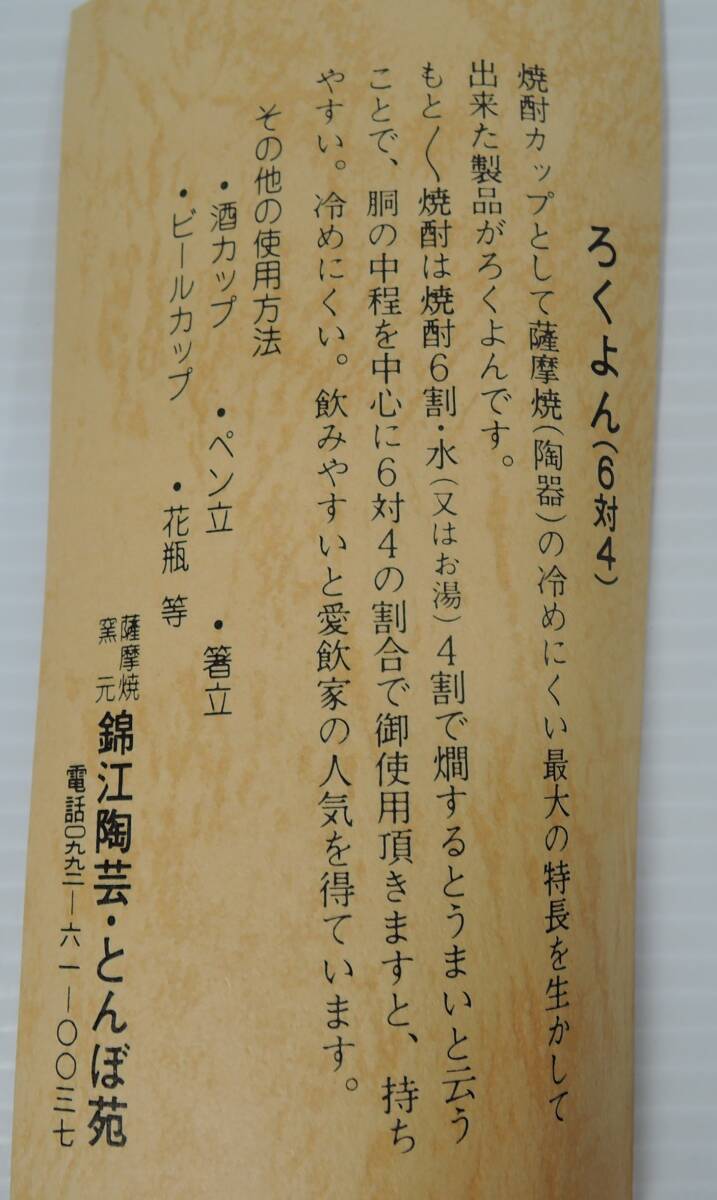 ろくよん(6対4)
焼酎カップとして薩摩焼(陶器)の冷めにくい最大の特長を生かして
出来た製品がろくよんです。
もと〱焼酎は焼酎6割・水(又はお湯)4割で燗するとうまいと云う
ことで、胴の中程を中心に6対4の割合で御使用頂きますと、持ち
やすい。冷めにくい。飲みやすいと愛飲家の人気を得ています。
その他の使用方法
・酒カップ ・ペン立 ・箸立
・ビールカップ ・花瓶 等
薩摩焼
窯元 錦江陶芸・とんぼ苑
電話〇九九二―六一―〇〇三七